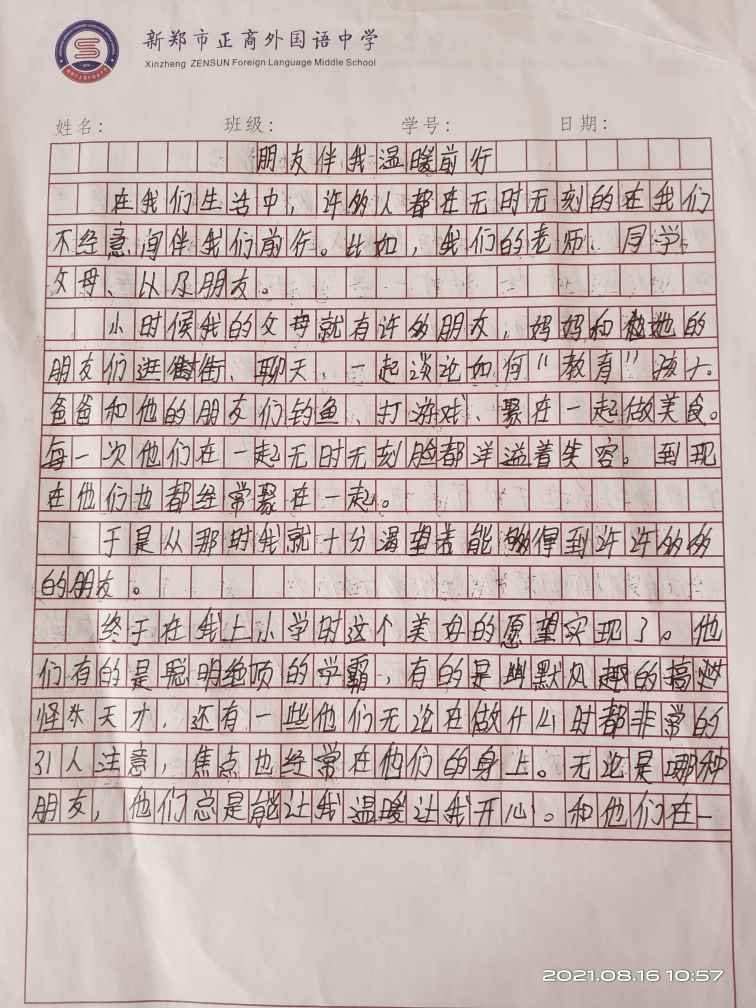 新郑市正商外国语中学
Xinzheng ZENSUN Foreign Language Middle School
姓名： 班级： 学号： 日期：
朋友伴我温暖前行
在我们生活中，许多人都在无时无刻的在我们
不经意间伴我们前行。比如，我们的老师、同学、
父母、以及朋友。
小时候我的父母就有许多朋友，妈妈和她的
朋友们逛街、聊天、一起谈论如何“教育”孩子。
爸爸和他的朋友们钓鱼、打游戏、聚在一起做美食。
每一次他们在一起无时无刻脸都洋溢着笑容。到现
在他们也都经常聚在一起。
于是从那时我就十分渴望着能够得到许许多多
的朋友。
终于在我上小学时这个美好的愿望实现了。他
们有的是聪明绝顶的学霸，有的是幽默风趣的搞
怪天才，还有一些他们无论在做什么时都非常的
引人注意，焦点也经常在他们的身上。无论是哪种
朋友，他们总是能让我温暖让我开心。和他们在一
2021.08.16 10:57